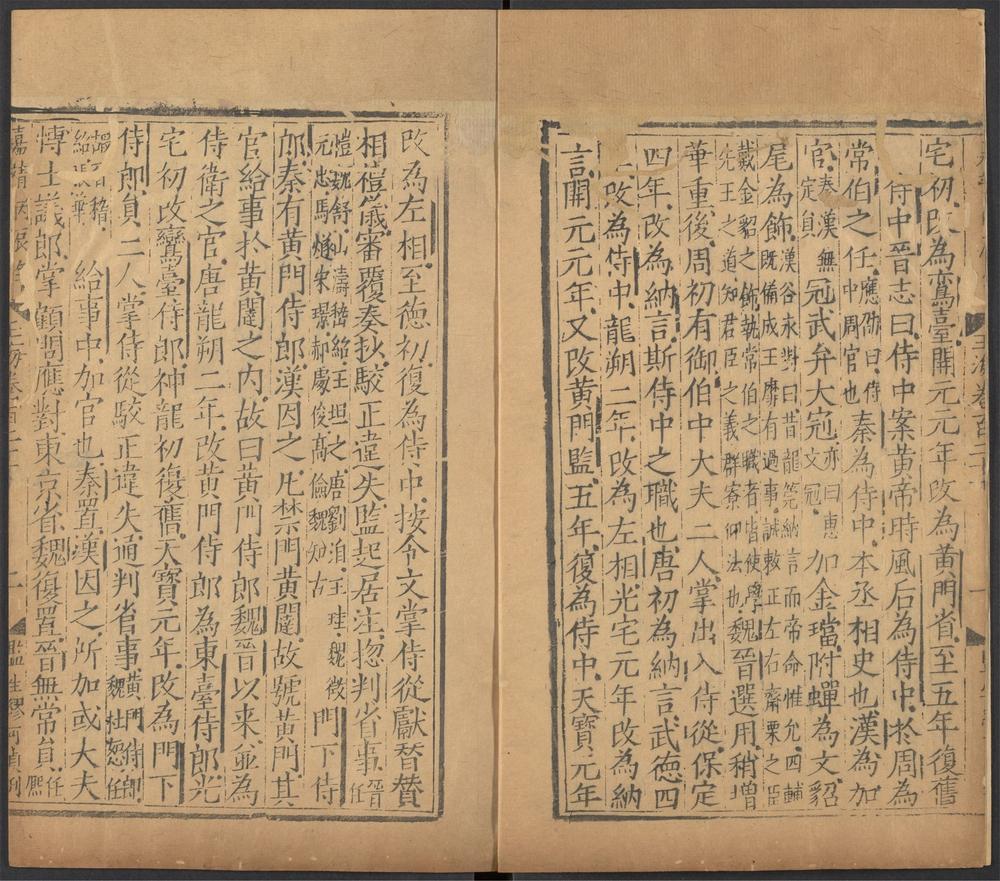 宅初改為鸞臺開元元年改為黃門省至五年復舊
侍中晉志曰侍中案黃帝時風后為侍中於周為
常伯之任應劭曰侍中周官也秦為侍中本丞相史也漢為加
官秦漢無定員冠武弁大冠亦曰惠文冠加金璫附蟬為文貂
尾為飾漢谷永對曰昔龍筦納言而帝命惟允四輔既備成王靡有過事誠敕正左右齋栗之臣
戴金貂之飾執常伯之職者皆使學先王之道知君臣之義群寮仰法也魏晉選用稍增
華重後周初有御伯中大夫二人掌出入侍從保定
四年改為納言斯侍中之職也唐初為納言武德四
改為侍中龍朔二年改為左相光宅元年改為納
言開元元年又改黃門監五年復為侍中天寶元年
改為左相至德初復為侍中按令文掌侍從獻替贊
相禮儀審覆奏抄駮正違失監起居注捴判省事晉任
愷魏舒山濤嵇紹王坦之唐劉洎王珪魏徵元忠馬燧宋璟郝處俊高儉魏知古門下侍
郎秦有黃門侍郎漢因之凡禁門黃闥故號黃門其
官給事於黃闥之內故曰黃門侍郎魏晉以來並為
侍衛之官唐龍朔二年改黃門侍郎為東臺侍郎光
宅初改鸞臺侍郎神龍初復舊天寶元年改為門下
侍郎員二人掌侍從駮正違失通判省事黃門侍郎魏杜恕任
給事中加官也秦置漢因之所加或大夫
博士議郎掌顧問應對東京省魏復置晉無常員任熙